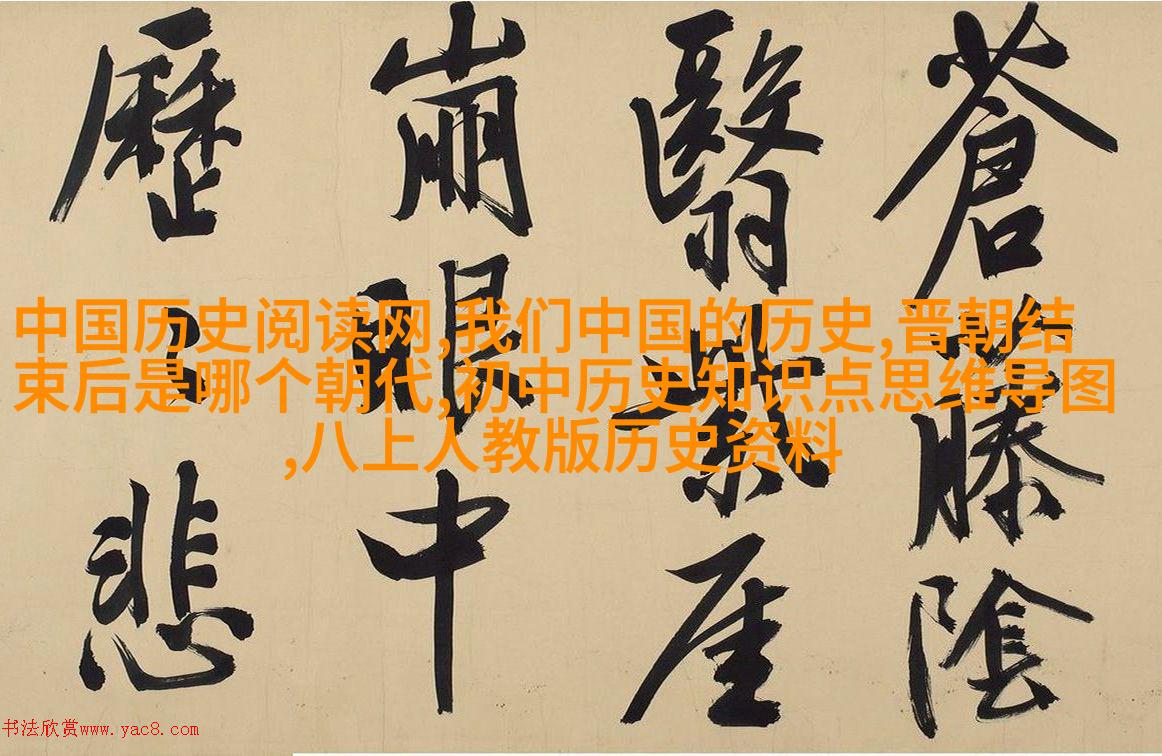 蒼藤陰
翳紫厓
崩眼中
歷悲
中国历史阅读网,我们中国的历史,晋朝结
束后是哪个朝代,初中历史知识点思维导图
,八上人教版历史资料
书法欣赏www.yac8.com